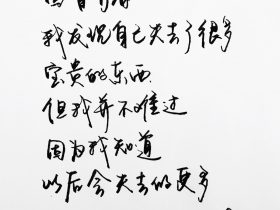 我发现自己失去了很多
宝贵的东西
但我并不难过
因为我知道
以后会失去的更多